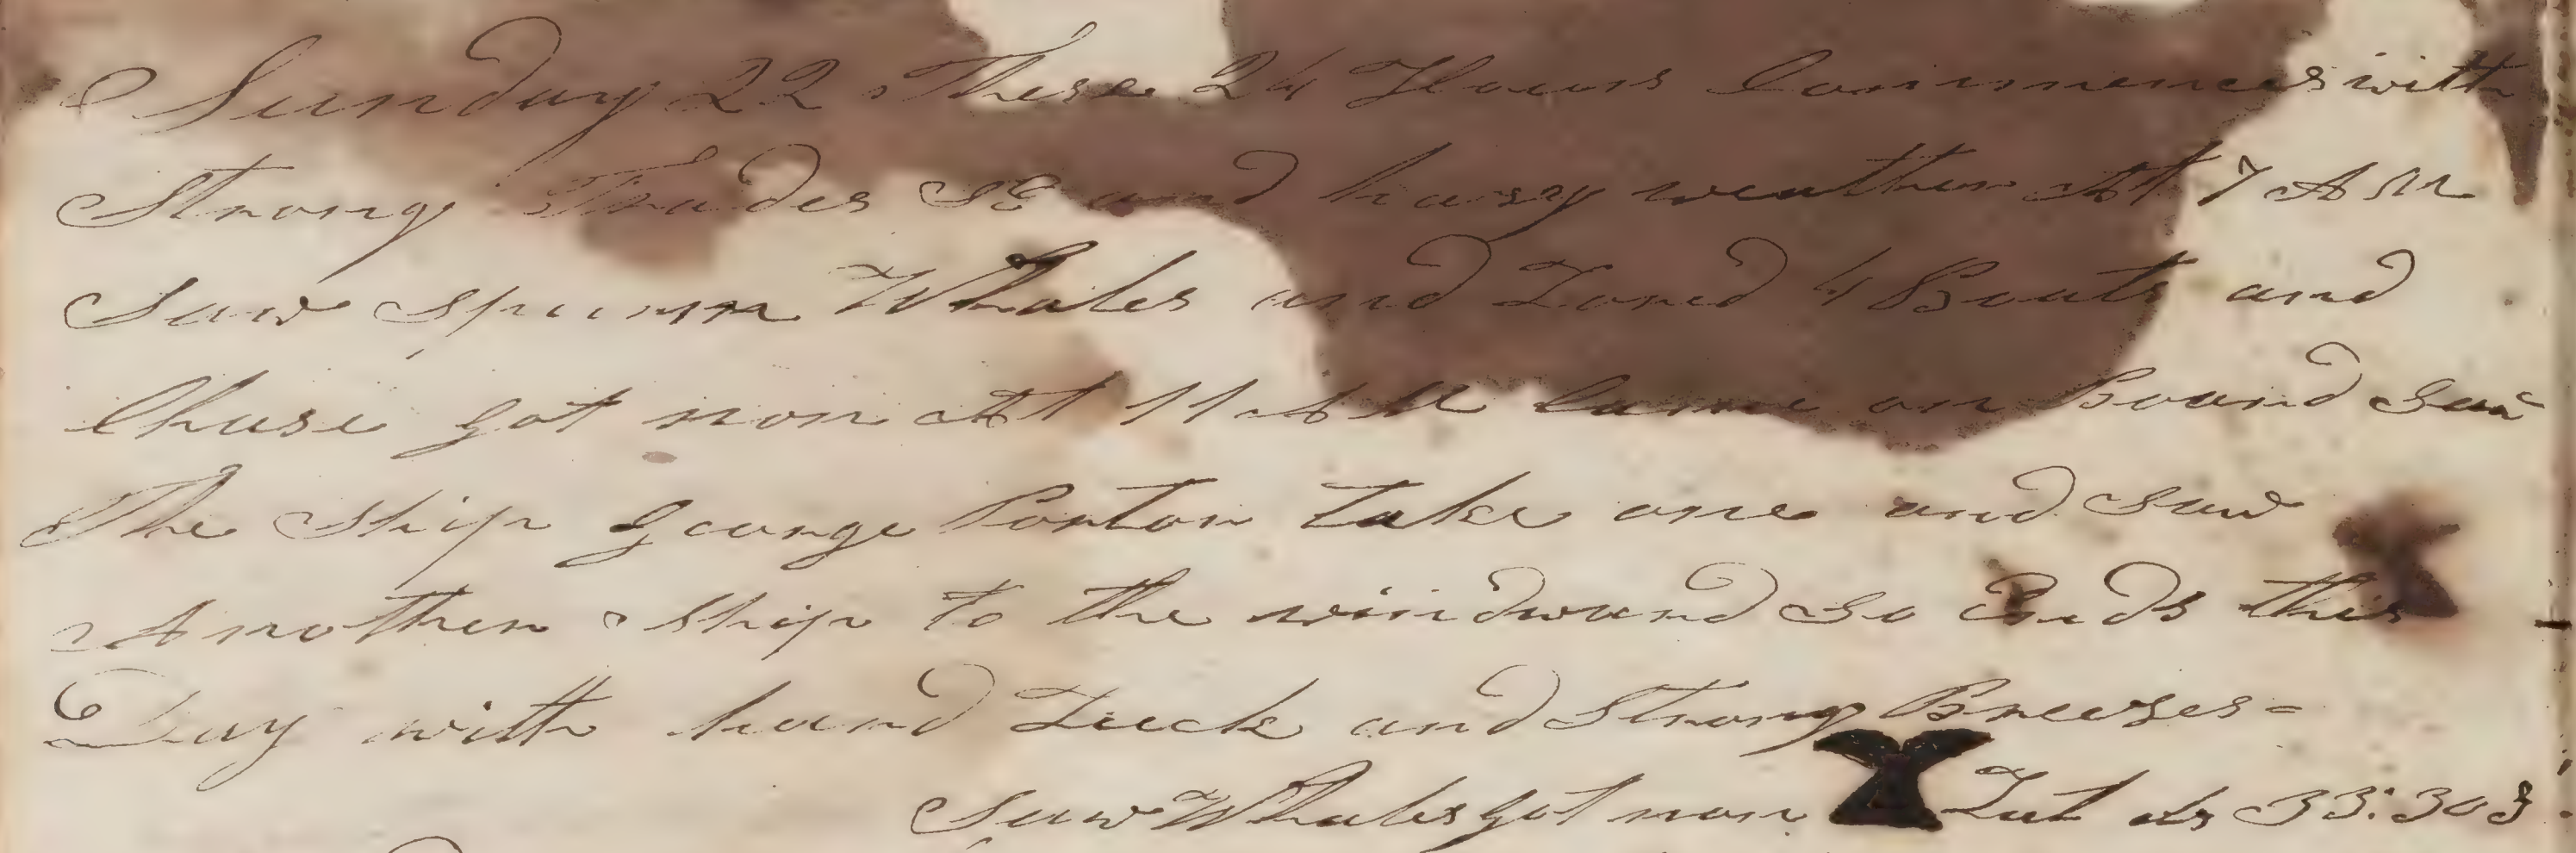 Sunday 22 These 24 Hours Commences with
Strong Trades SE and hasy weather At 7 AM
Saw Spurm Whales and Lored 4 Boats and
Chase got non At 11 AM Came on Board Saw
The Ship George Porton take one and Saw
Another Ship to the windward So Ends this
Day with hard Luck and Strong Breeses =
Saw Whales got non Lat